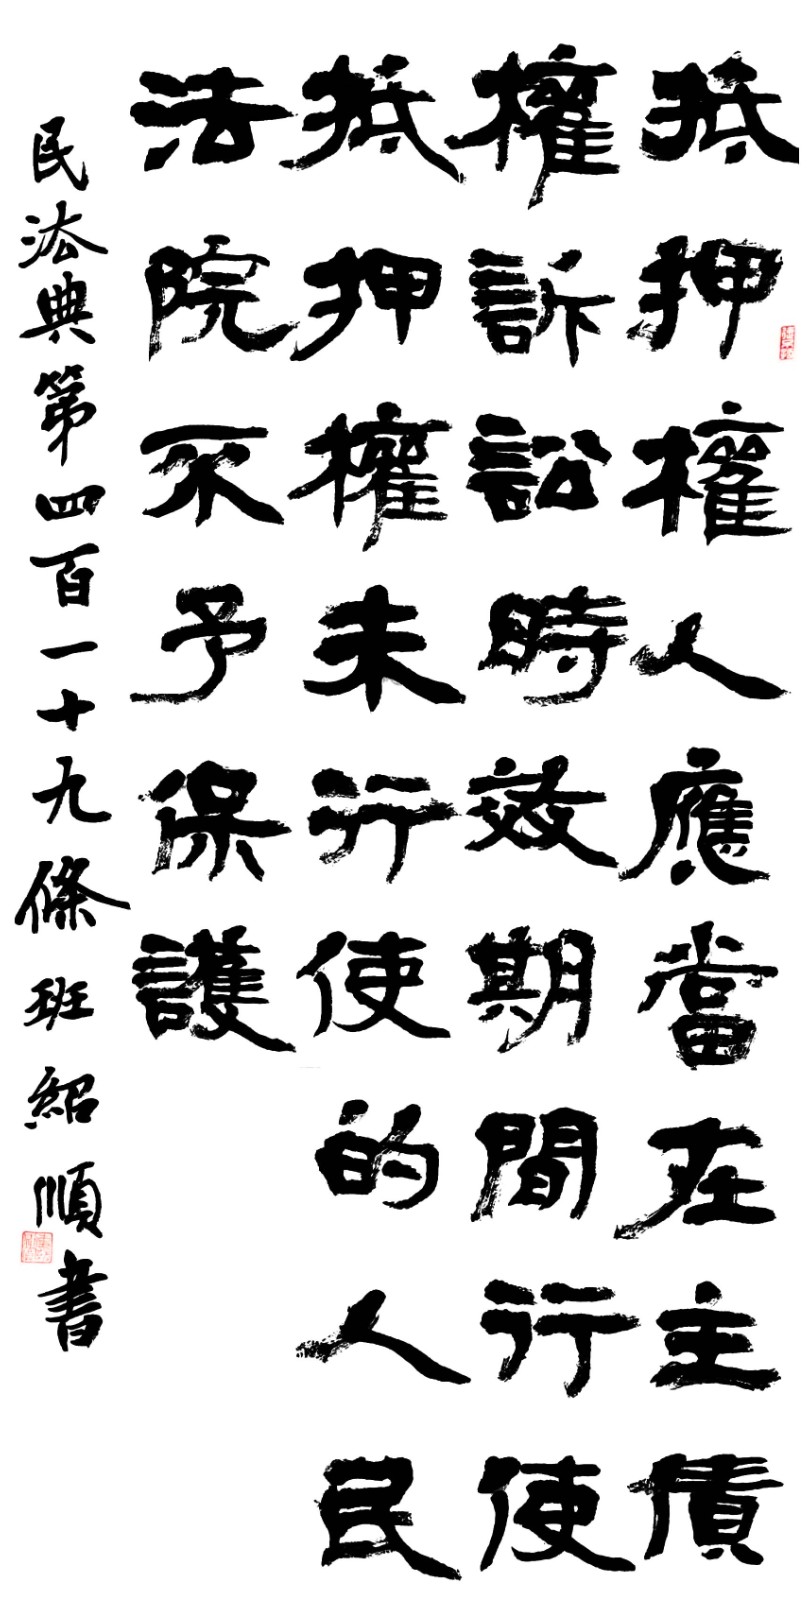 抵押權人應當在主債
權訴訟時效期間行使
抵押權未行使的人民
法院不予保護
民法典第四百一十九條班紹順書